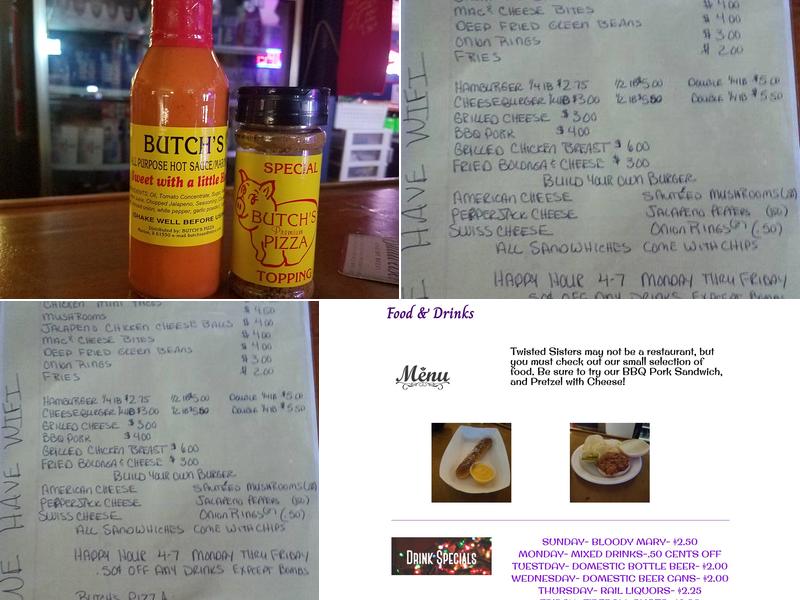 BUTCH'S
PURPOSE HOT SAUCE/MAR
Sweet with a little
SHAKE WELL BEFORE
Distributed by: BUTCH'S PIZZA
SPECIAL
BUTCH'S
Premium
PIZZA
TOPPING
MAC & CHEESE BITES $4.00
DEEP FRIED GREEN BEANS $4.00
ONION RINGS $3.00
FRIES $2.00
HAMBURGER 1/4 lB $2.75 1/2 lB $5.00 DOUBLE 1/4 lB $5.00
CHEESEBURGER 1/4 lB $3.00 1/2 lB $5.50 DOUBLE 1/4 lB $5.50
GRILLED CHEESE $3.00
BBQ PORK $4.00
GRILLED CHICKEN BREAST $6.00
FRIED BOLONGA & CHEESE $3.00
BUILD YOUR OWN BURGER
AMERICAN CHEESE SAUTEED MUSHROOMS
PEPPERJACK CHEESE JALAPENO PEPPERS (.50)
SWISS CHEESE ONION RINGS (.50)
ALL SANDWHICHES COME WITH CHIPS
HAPPY HOUR 4-7 MONDAY THRU FRIDAY
.50¢ OFF ANY DRINKS EXCEPT BOMBS
HAVE WIFI
CHICKEN MINI TACOS
MUSHROOMS $4.00
JALAPENO CHICKEN CHEESE BALLS $4.00
MAC & CHEESE BITES $4.00
DEEP FRIED GREEN BEANS $4.00
ONION RINGS $3.00
FRIES $2.00
HAMBURGER 1/4 lB $2.75 1/2 lB $5.00 DOUBLE 1/4 lB $5.00
CHEESEBURGER 1/4 lB $3.00 1/2 lB $5.50 DOUBLE 1/4 lB $5.50
GRILLED CHEESE $3.00
BBQ PORK $4.00
GRILLED CHICKEN BREAST $6.00
FRIED BOLONGA & CHEESE $3.00
BUILD YOUR OWN BURGER
AMERICAN CHEESE SAUTEED MUSHROOMS
PEPPERJACK CHEESE JALAPENO PEPPERS (.50)
SWISS CHEESE ONION RINGS (.50)
ALL SANDWHICHES COME WITH CHIPS
HAPPY HOUR 4-7 MONDAY THRU FRIDAY
.50¢ OFF ANY DRINKS EXCEPT BOMBS
BUTCH'S PIZZA
WE HAVE WIFI
Food & Drinks
Menu
Twisted Sisters may not be a restaurant, but
you must check out our small selection of
food. Be sure to try our BBQ Pork Sandwich,
and Pretzel with Cheese!
DRINK SPECIALS
SUNDAY- BLOODY MARY- $2.50
MONDAY- MIXED DRINKS-.50 CENTS OFF
TUESDAY- DOMESTIC BOTTLE BEER- $2.00
WEDNESDAY- DOMESTIC BEER CANS- $2.00
THURSDAY- RAIL LIQUORS- $2.25